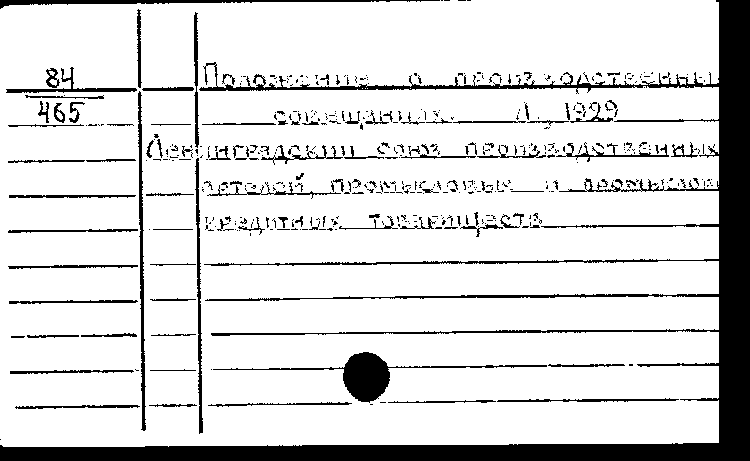 84
465
Положение о производственны
совещаниях. Л., 1929
Ленинградский союз производственных
артелей, промысловых и промыслов
кредитных товариществ